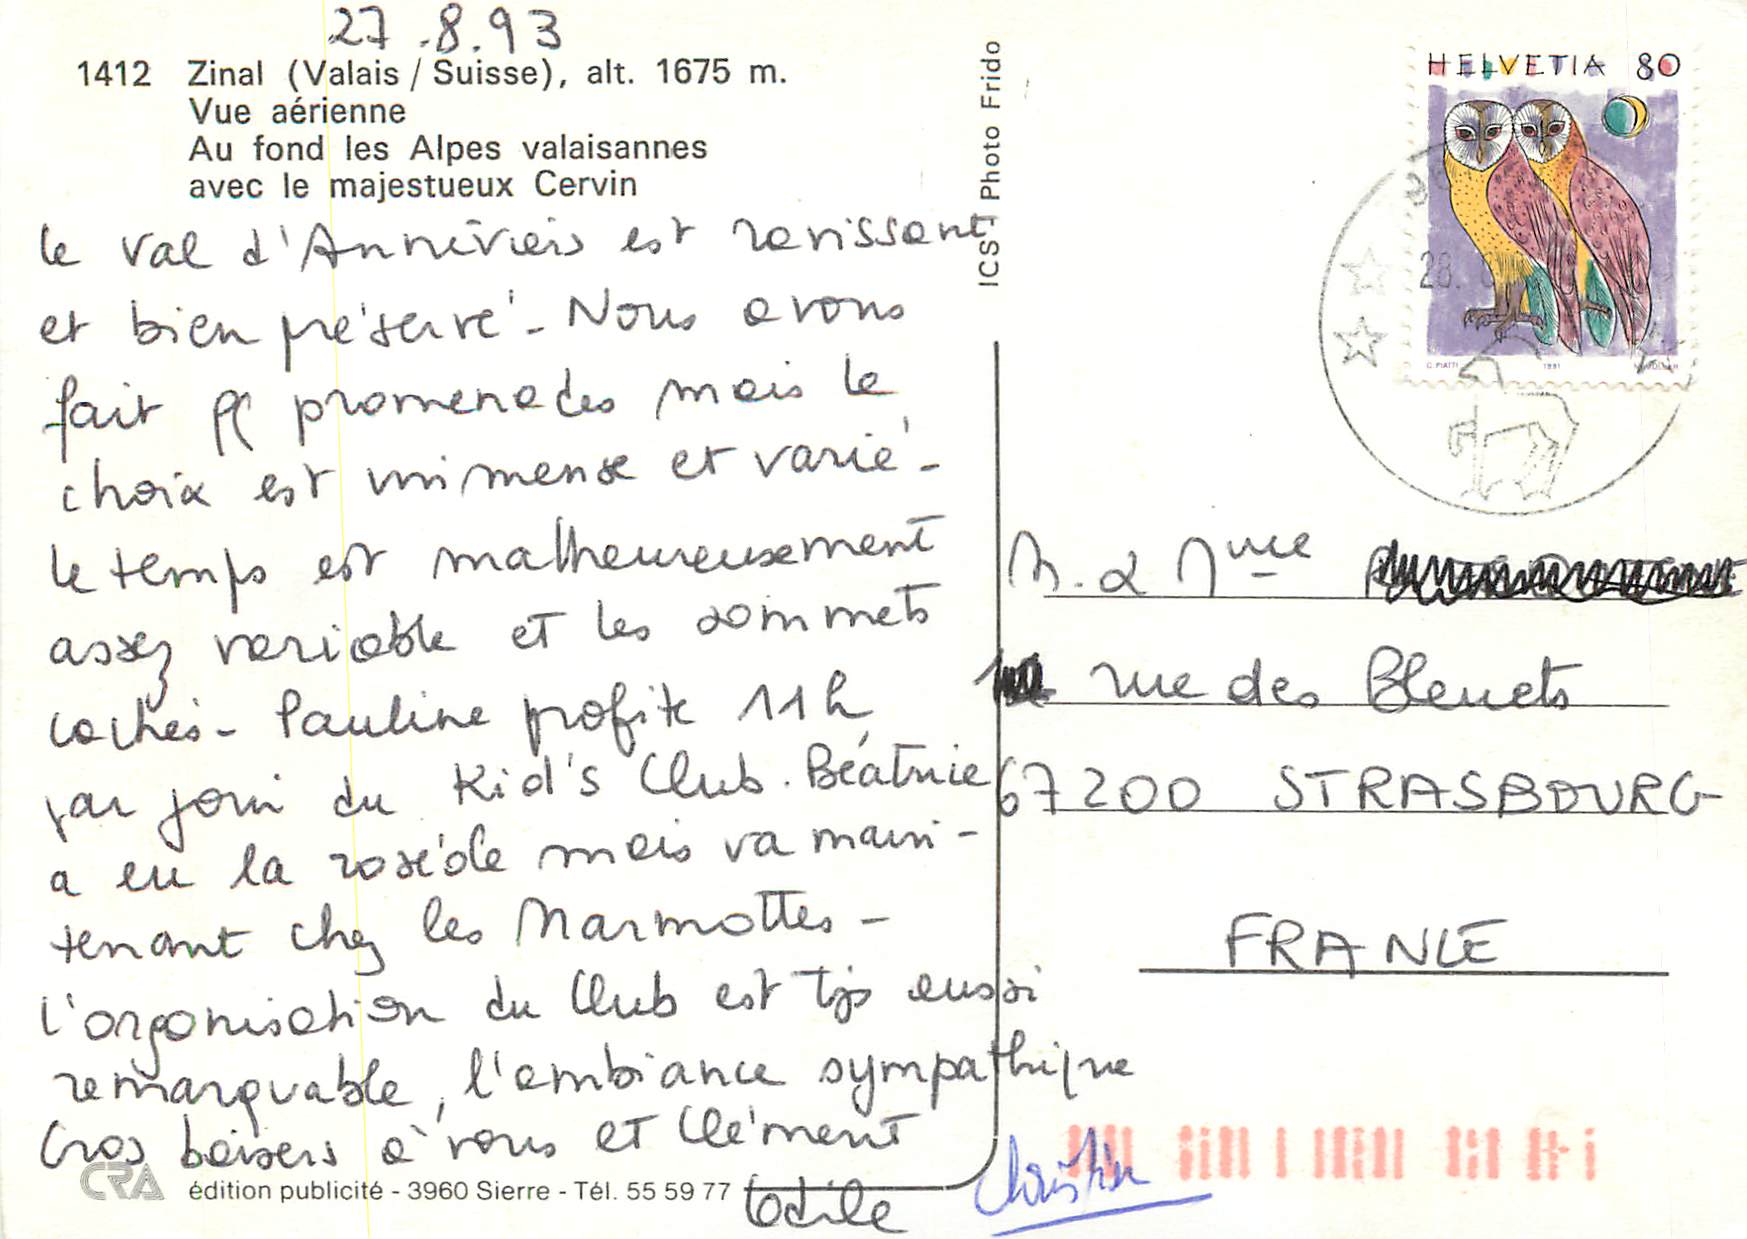 27.8.93
1412 Zinal (Valais / Suisse), alt. 1675 m.
Vue aérienne
Au fond les Alpes valaisannes
avec le majestueux Cervin
le val d'Anniviers est ravissant
et bien préservé - Nous avons
fait qq promenades mais le
choix est immense et varié -
le temps est malheureusement
assez variable et les sommets
cachés - Pauline profite 11h
par jour du Kid's Club. Béatrice
a eu la roséole mais va main-
tenant chez les Marmottes -
l'organisation du Club est tjs aussi
remarquable, l'ambiance sympathique
Gros baisers à vous et Clément
Odile
Christian
CRA édition publicité - 3960 Sierre - Tél. 55 59 77
ICS - Photo Frido
HELVETIA 80
C. PIATTI 1991
28.
M. & Mme
rue des Bleuets
67200 STRASBOURG
FRANCE